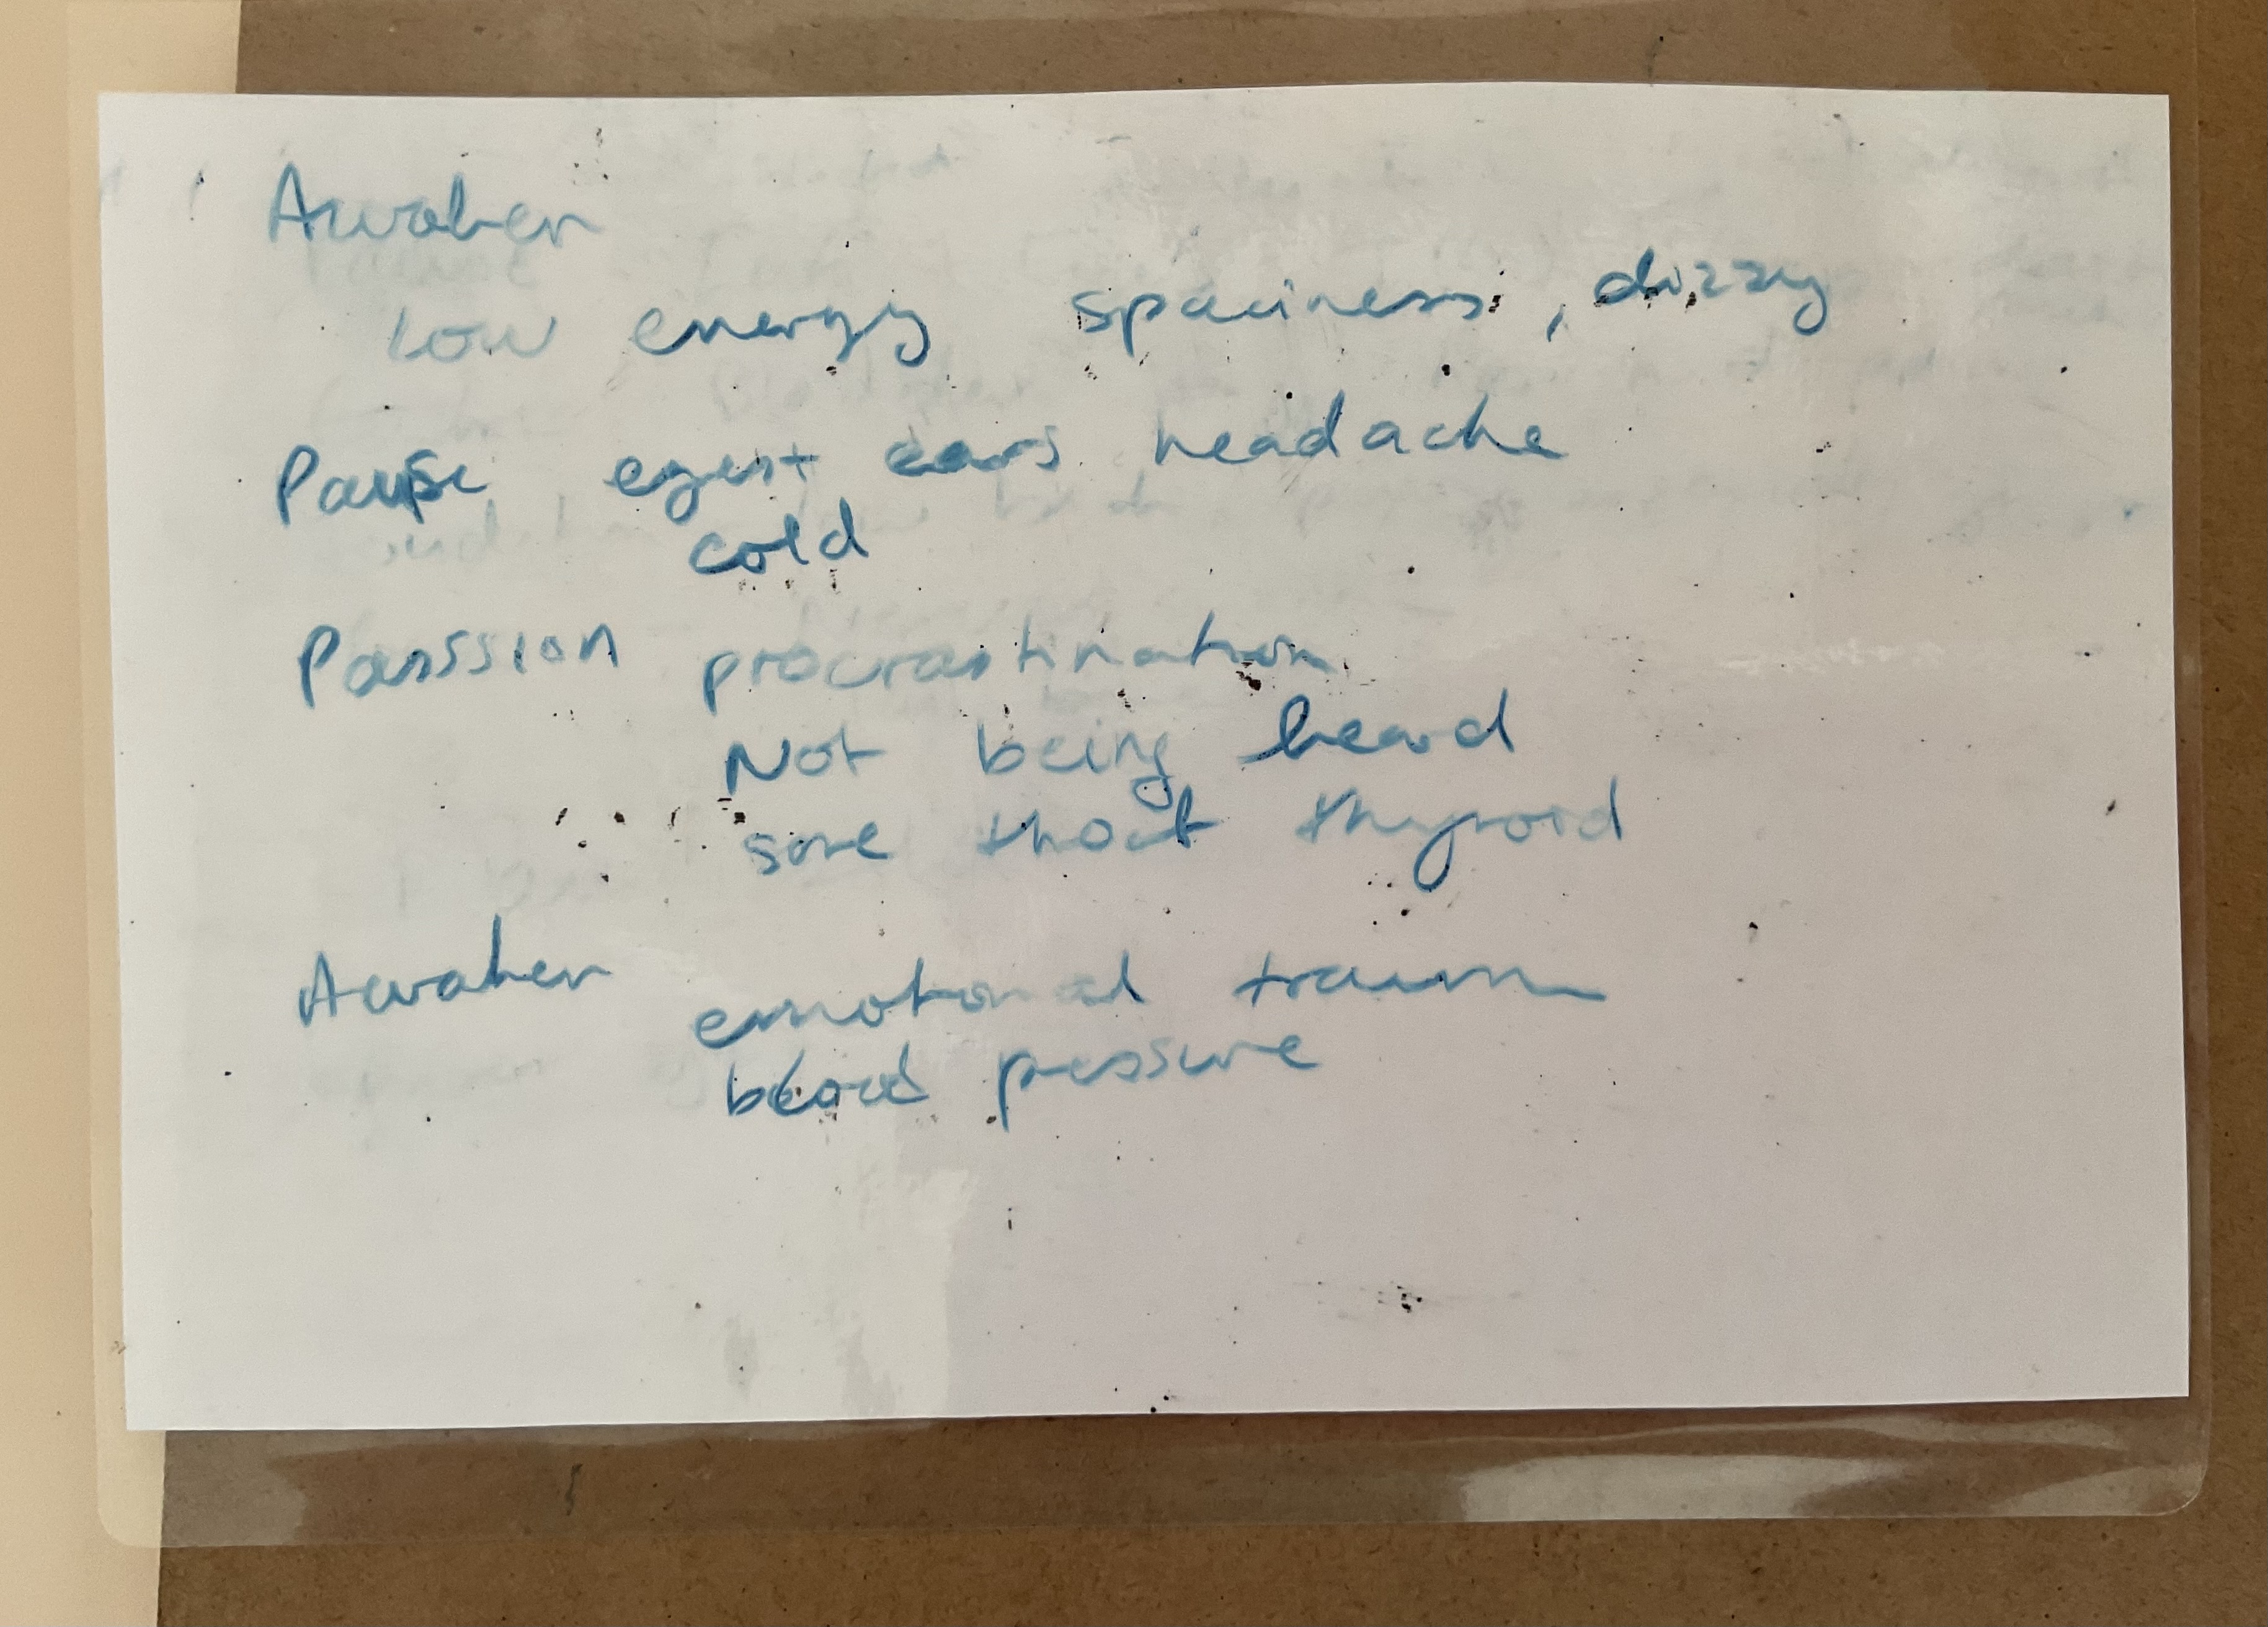 Awaken
low energy spaciness, dizzy
Pause eyes + ears headache
cold
Passsion procrastination
Not being heard
sore thoat thyroid
Awaken emotional traum
blood pressure